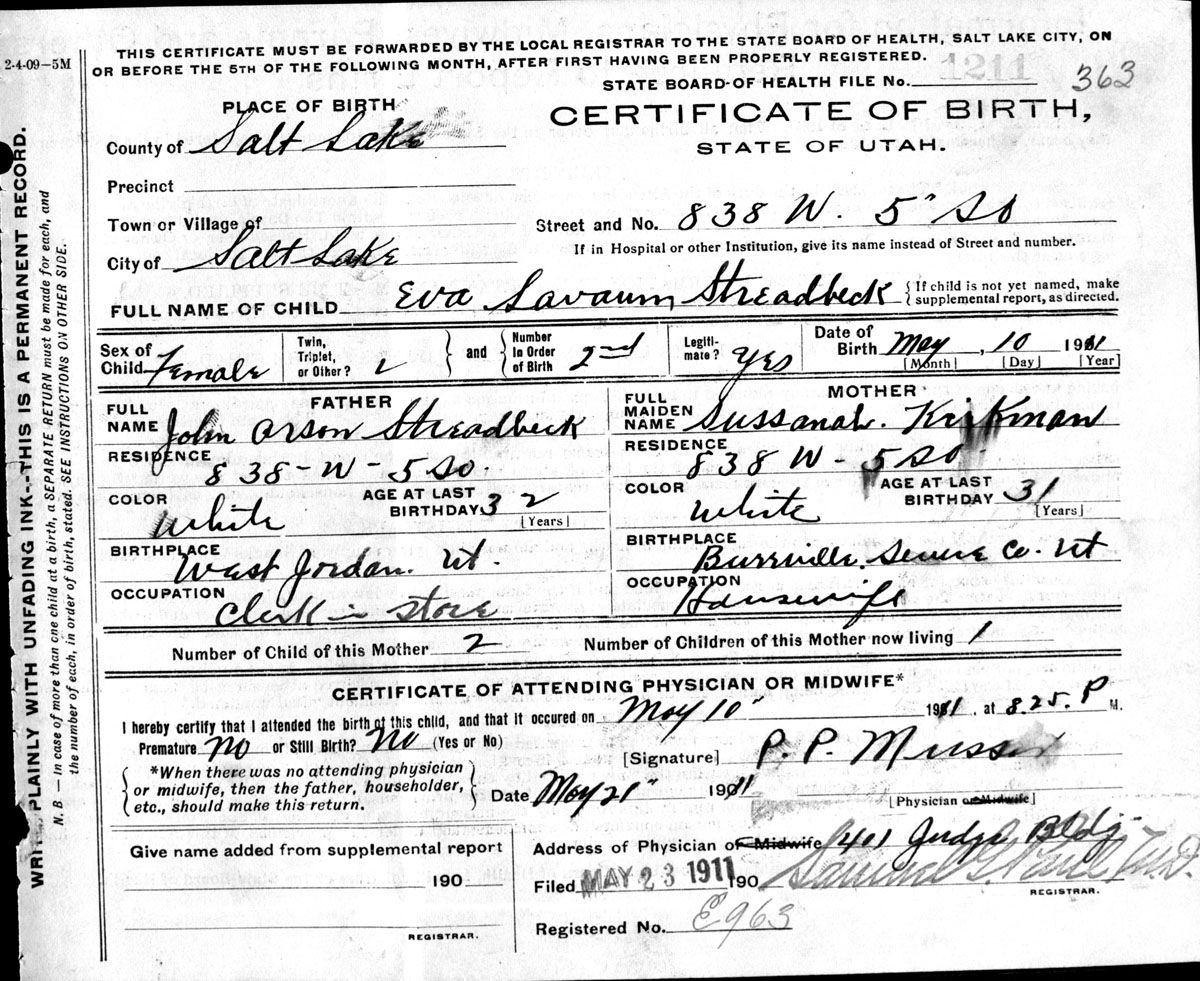 2-4-09-5M
THIS CERTIFICATE MUST BE FORWARDED BY THE LOCAL REGISTRAR TO THE STATE BOARD OF HEALTH, SALT LAKE CITY, ON
OR BEFORE THE 5TH OF THE FOLLOWING MONTH, AFTER FIRST HAVING BEEN PROPERLY REGISTERED.
1211
STATE BOARD OF HEALTH FILE No. 363
PLACE OF BIRTH
CERTIFICATE OF BIRTH,
STATE OF UTAH.
County of Salt Lake
Precinct
Town or Village of
Street and No. 838 W. 5" So
If in Hospital or other Institution, give its name instead of Street and number.
City of Salt Lake
FULL NAME OF CHILD Eva Streadbeck {If child is not yet named, make
supplemental report, as directed.
Sex of Child Female
Twin, Triplet, or Other?
and
Number In Order of Birth 2nd
Legiti-mate? Yes
Date of Birth May, 10 1911
[Month] [Day] [Year]
FATHER
FULL NAME John Orson Streadbeck
RESIDENCE 838-W-5 So.
COLOR White
AGE AT LAST BIRTHDAY 32
[Years]
BIRTHPLACE West Jordan. Ut.
OCCUPATION Clerk in Store
MOTHER
FULL MAIDEN NAME Sussanah. Kirkman
RESIDENCE 838 W- 5 So.
COLOR White
AGE AT LAST BIRTHDAY 31
[Years]
BIRTHPLACE Burrville. Co. Ut
OCCUPATION Housewife
Number of Child of this Mother 2
Number of Children of this Mother now living 1
CERTIFICATE OF ATTENDING PHYSICIAN OR MIDWIFE*
I hereby certify that I attended the birth of this child, and that it occured on May 10" 1911, at 8.25. P M.
Premature No or Still Birth? No (Yes or No)
[Signature] P. P. Musser
{*When there was no attending physician
or midwife, then the father, householder,
etc., should make this return.}
Date May 21" 1911
[Physician or Midwife]
Give name added from supplemental report
190
REGISTRAR.
Address of Physician or Midwife 401 Judge Bldg.
Filed MAY 23 1911 190
REGISTRAR.
Registered No. E963
WRITE PLAINLY WITH UNFADING INK--THIS IS A PERMANENT RECORD.
N. B. — In case of more than one child at a birth, a SEPARATE RETURN must be made for each, and
the number of each, in order of birth, stated. SEE INSTRUCTIONS ON OTHER SIDE.